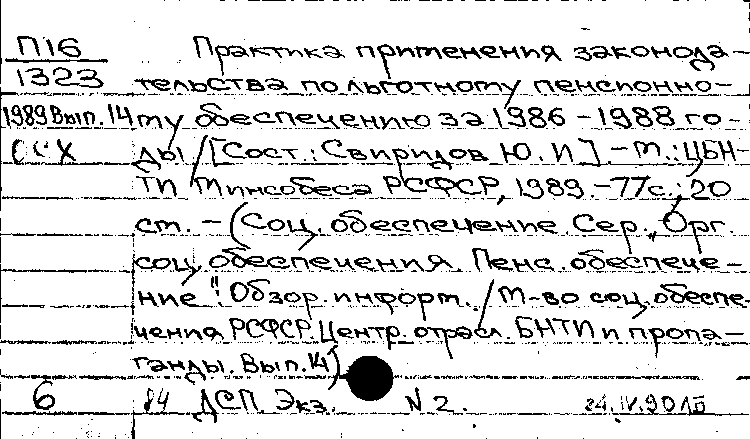 П16 Практика применения законода-
1323 тельства по льготному пенсионно-
1989 Вып. 14 му обеспечению за 1986 - 1988 го-
ОСХ ды / [Сост.: Свиридов Ю. И]. - М.: ЦБН-
ТИ Минсобеса РСФСР, 1989. - 77 с.; 20
см. - (Соц. обеспечение. Сер. „Орг.
соц. обеспечения. Пенс. обеспече-
ние": Обзор. информ. / М-во соц. обеспе-
чения РСФСР. Центр. отрасл. БНТИ и пропа-
ганды. Вып. 14)
6 84 ДСП. Экз. N 2. 24.IV.90